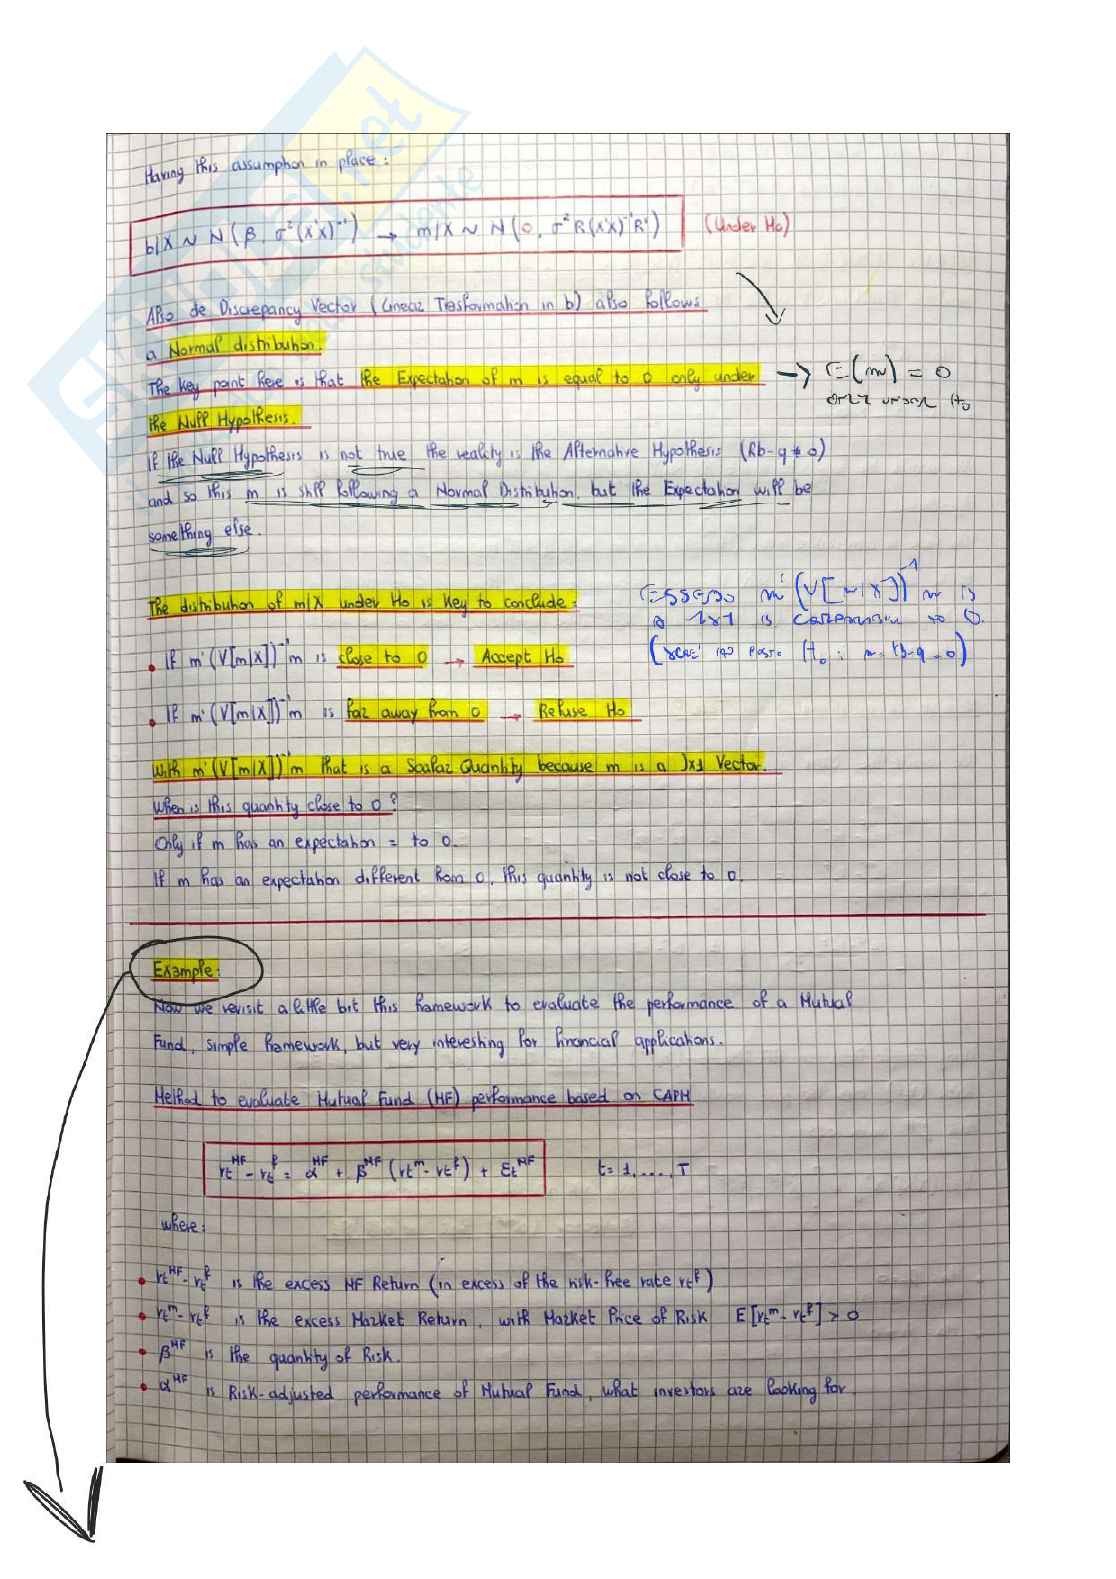 Having this assumption in place:
b|X ~ N(β, σ²(X'X)⁻¹) → m|X ~ N(0, σ²R(X'X)⁻¹R') (Under Ho)
Also de Discrepancy Vector (Linear Trasformation in b) also follows
a Normal distribution.
The Key point here is that the Expectation of m is equal to 0 only under → E(m) = 0
the Null Hypothesis. only under Ho
If the Null Hypothesis is not true the reality is the Alternative Hypothesis (Rb-q ≠ 0)
and so this m is still following a Normal Distribution, but the Expectation will be
something else.
The distribution of m|X under Ho is Key to conclude:
• If m'(V[m|X])⁻¹m is close to 0 → Accept Ho
• If m'(V[m|X])⁻¹m is far away from 0 → Refuse Ho
ESSENDO m'(V[m|X])⁻¹ m is
a 1x1 is 0.
(Ho: m=Rb-q=0)
With m'(V[m|X])⁻¹m that is a Scalar Quantity because m is a Jx1 Vector.
When is this quantity close to 0?
Only if m has an expectation = to 0.
If m has an expectation different from 0, this quantity is not close to 0.
Example:
Now we revisit a little bit this framework to evaluate the performance of a Mutual
Fund, simple framework, but very interesting for financial applications.
Method to evaluate Mutual Fund (MF) performance based on CAPM
rt^MF - rt^f = α^MF + β^MF (rt^m - rt^f) + Et^MF t=1,...,T
where:
• rt^MF - rt^f is the excess MF Return (in excess of the risk-free rate rt^f)
• rt^m - rt^f is the excess Market Return, with Market Price of Risk E[rt^m - rt^f] > 0
• β^MF is the quantity of Risk.
• α^MF is Risk-adjusted performance of Mutual Fund, what investors are looking for